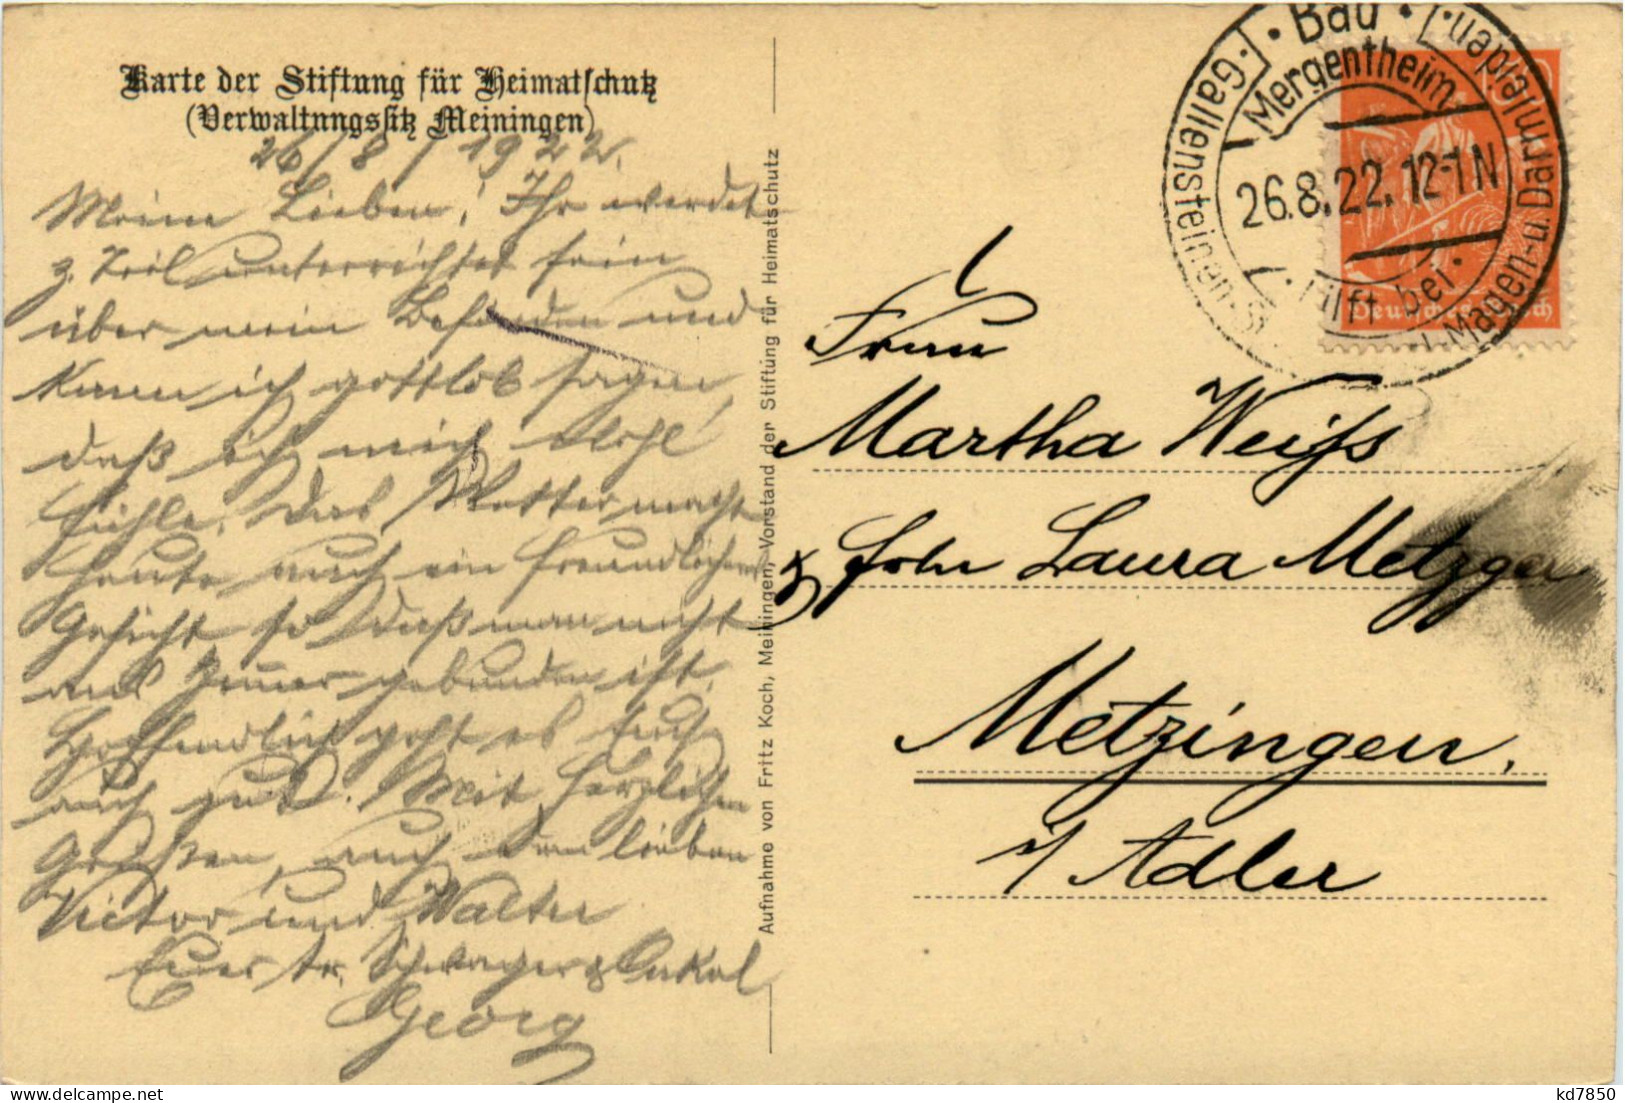 Karte der Stiftung für Heimatschutz
(Verwaltungssitz Meiningen)
26/8/1922.
Meine Lieben! Ihr werdet
z. Teil unterrichtet sein
über mein Befinden und
kann ich gottlob sagen,
daß ich mich wohl
fühle. Das Wetter macht
heute auch ein freundliches
Gesicht so daß man nicht
ans Zimmer gebunden ist.
Hoffendlich geht es Euch
auch gut. Mit herzlichen
Grüssen, auch den lieben
Victor und Walter
Euer tr. Schwager & Onkel
Georg
Aufnahme von Fritz Koch, Meiningen, Vorstand der Stiftung für Heimatschutz
Bad
Mergentheim
26.8.22.12-1N
Hilft bei
Gallensteinen
Magen- u. Darmleiden
Deutsches Reich
Frau
Martha Weiss
Laura Metzger
Metzingen.
i/ Adler
kd7850